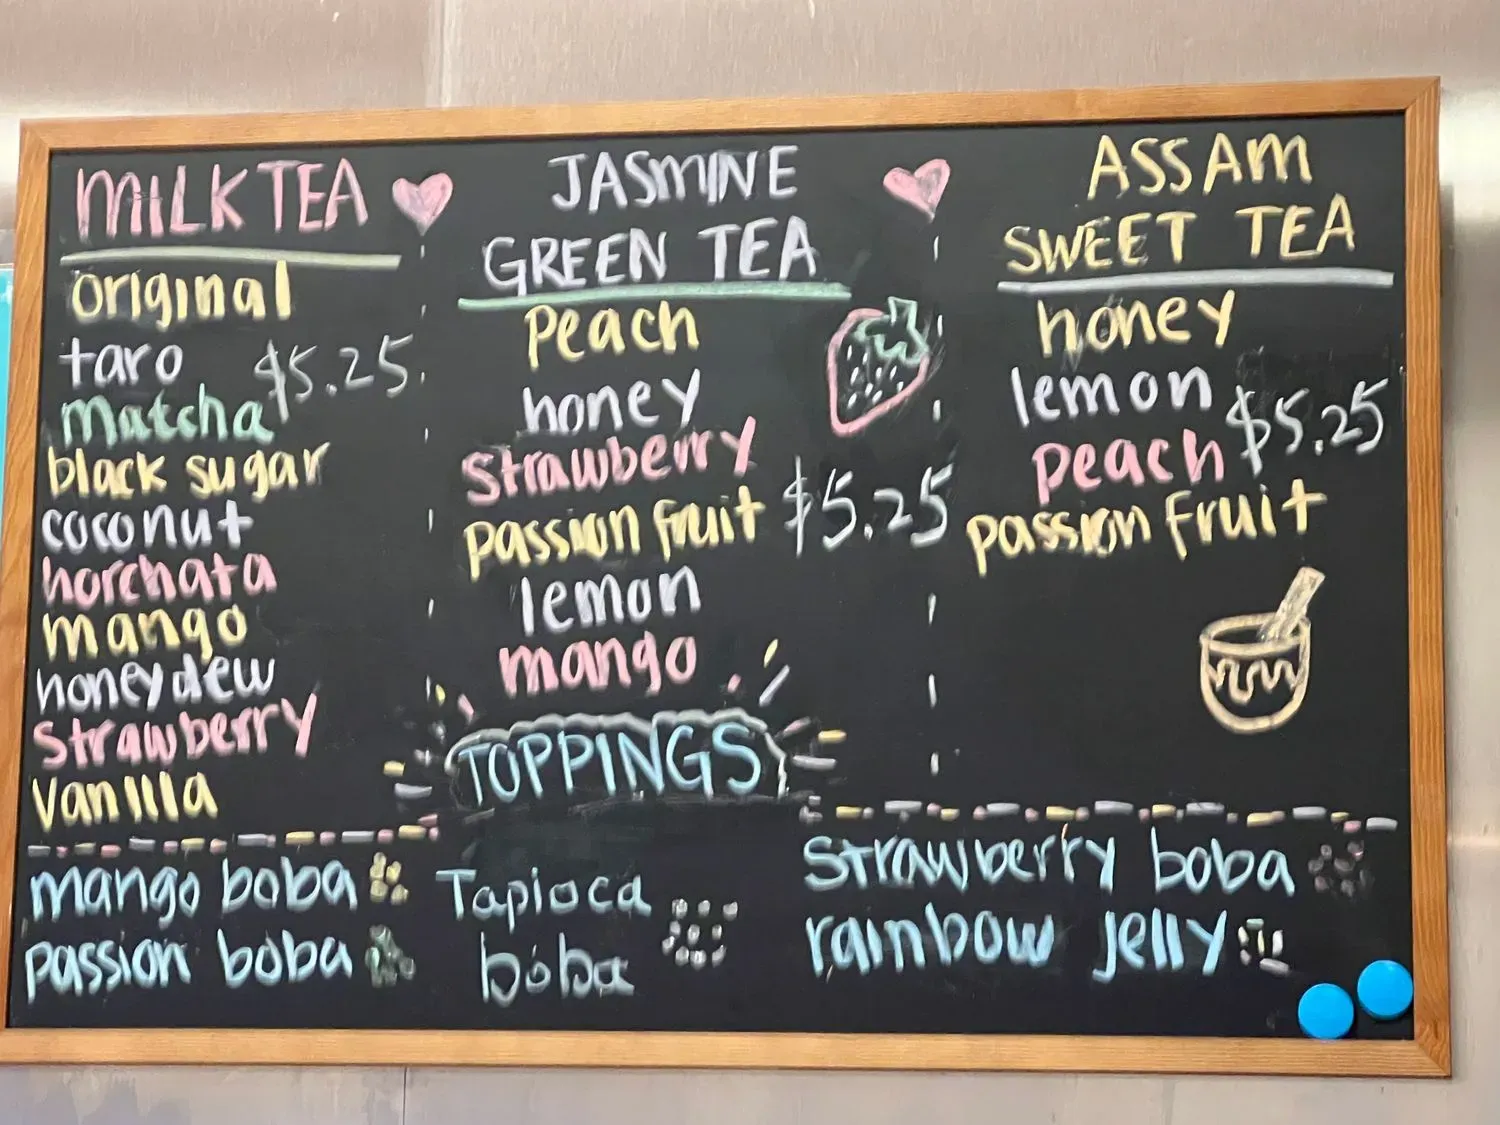 MILK TEA
original
taro
$5.25
matcha
black sugar
coconut
horchata
mango
honeydew
strawberry
vanilla
JASMINE
GREEN TEA
Peach
honey
strawberry
passion fruit $5.25
lemon
mango
ASSAM
SWEET TEA
honey
lemon
$5.25
peach
passion fruit
TOPPINGS
mango boba
passion boba
Tapioca
boba
strawberry boba
rainbow jelly